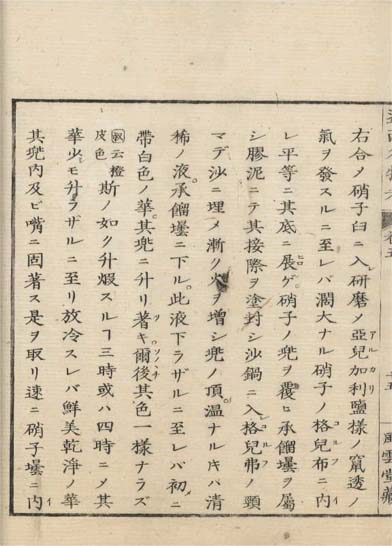 右合メ硝子臼ニ入研磨メ亞兒加利鹽様ノ竄透ノ
氣ヲ發スルニ至レバ濶大ナル硝子ノ格兒布ニ内
レ平等ニ其底ニ展ゲ硝子ノ兜ヲ覆ヒ承餾壜ヲ屬
シ膠泥ニテ其接際ヲ塗封シ沙鍋ニ入格兒弗ノ頸
マデ沙ニ埋メ漸ク火ヲ増シ兜ノ頂温ナルキハ清
稀ノ液承餾壜ニ下ル此液下ラザルニ至レバ初メニ
帶白色ノ華其兜ニ升リ著キ爾後其色一様ナラズ
云橙皮色斯ノ如ク升煆スルヿ三時或ハ四時ニメ其
華少モ升ラザルニ至リ放冷スレバ鮮美乾淨ノ華
其兜内及ビ嘴ニ固著ス是ヲ取リ速ニ硝子壜ニ内
風雲堂藏